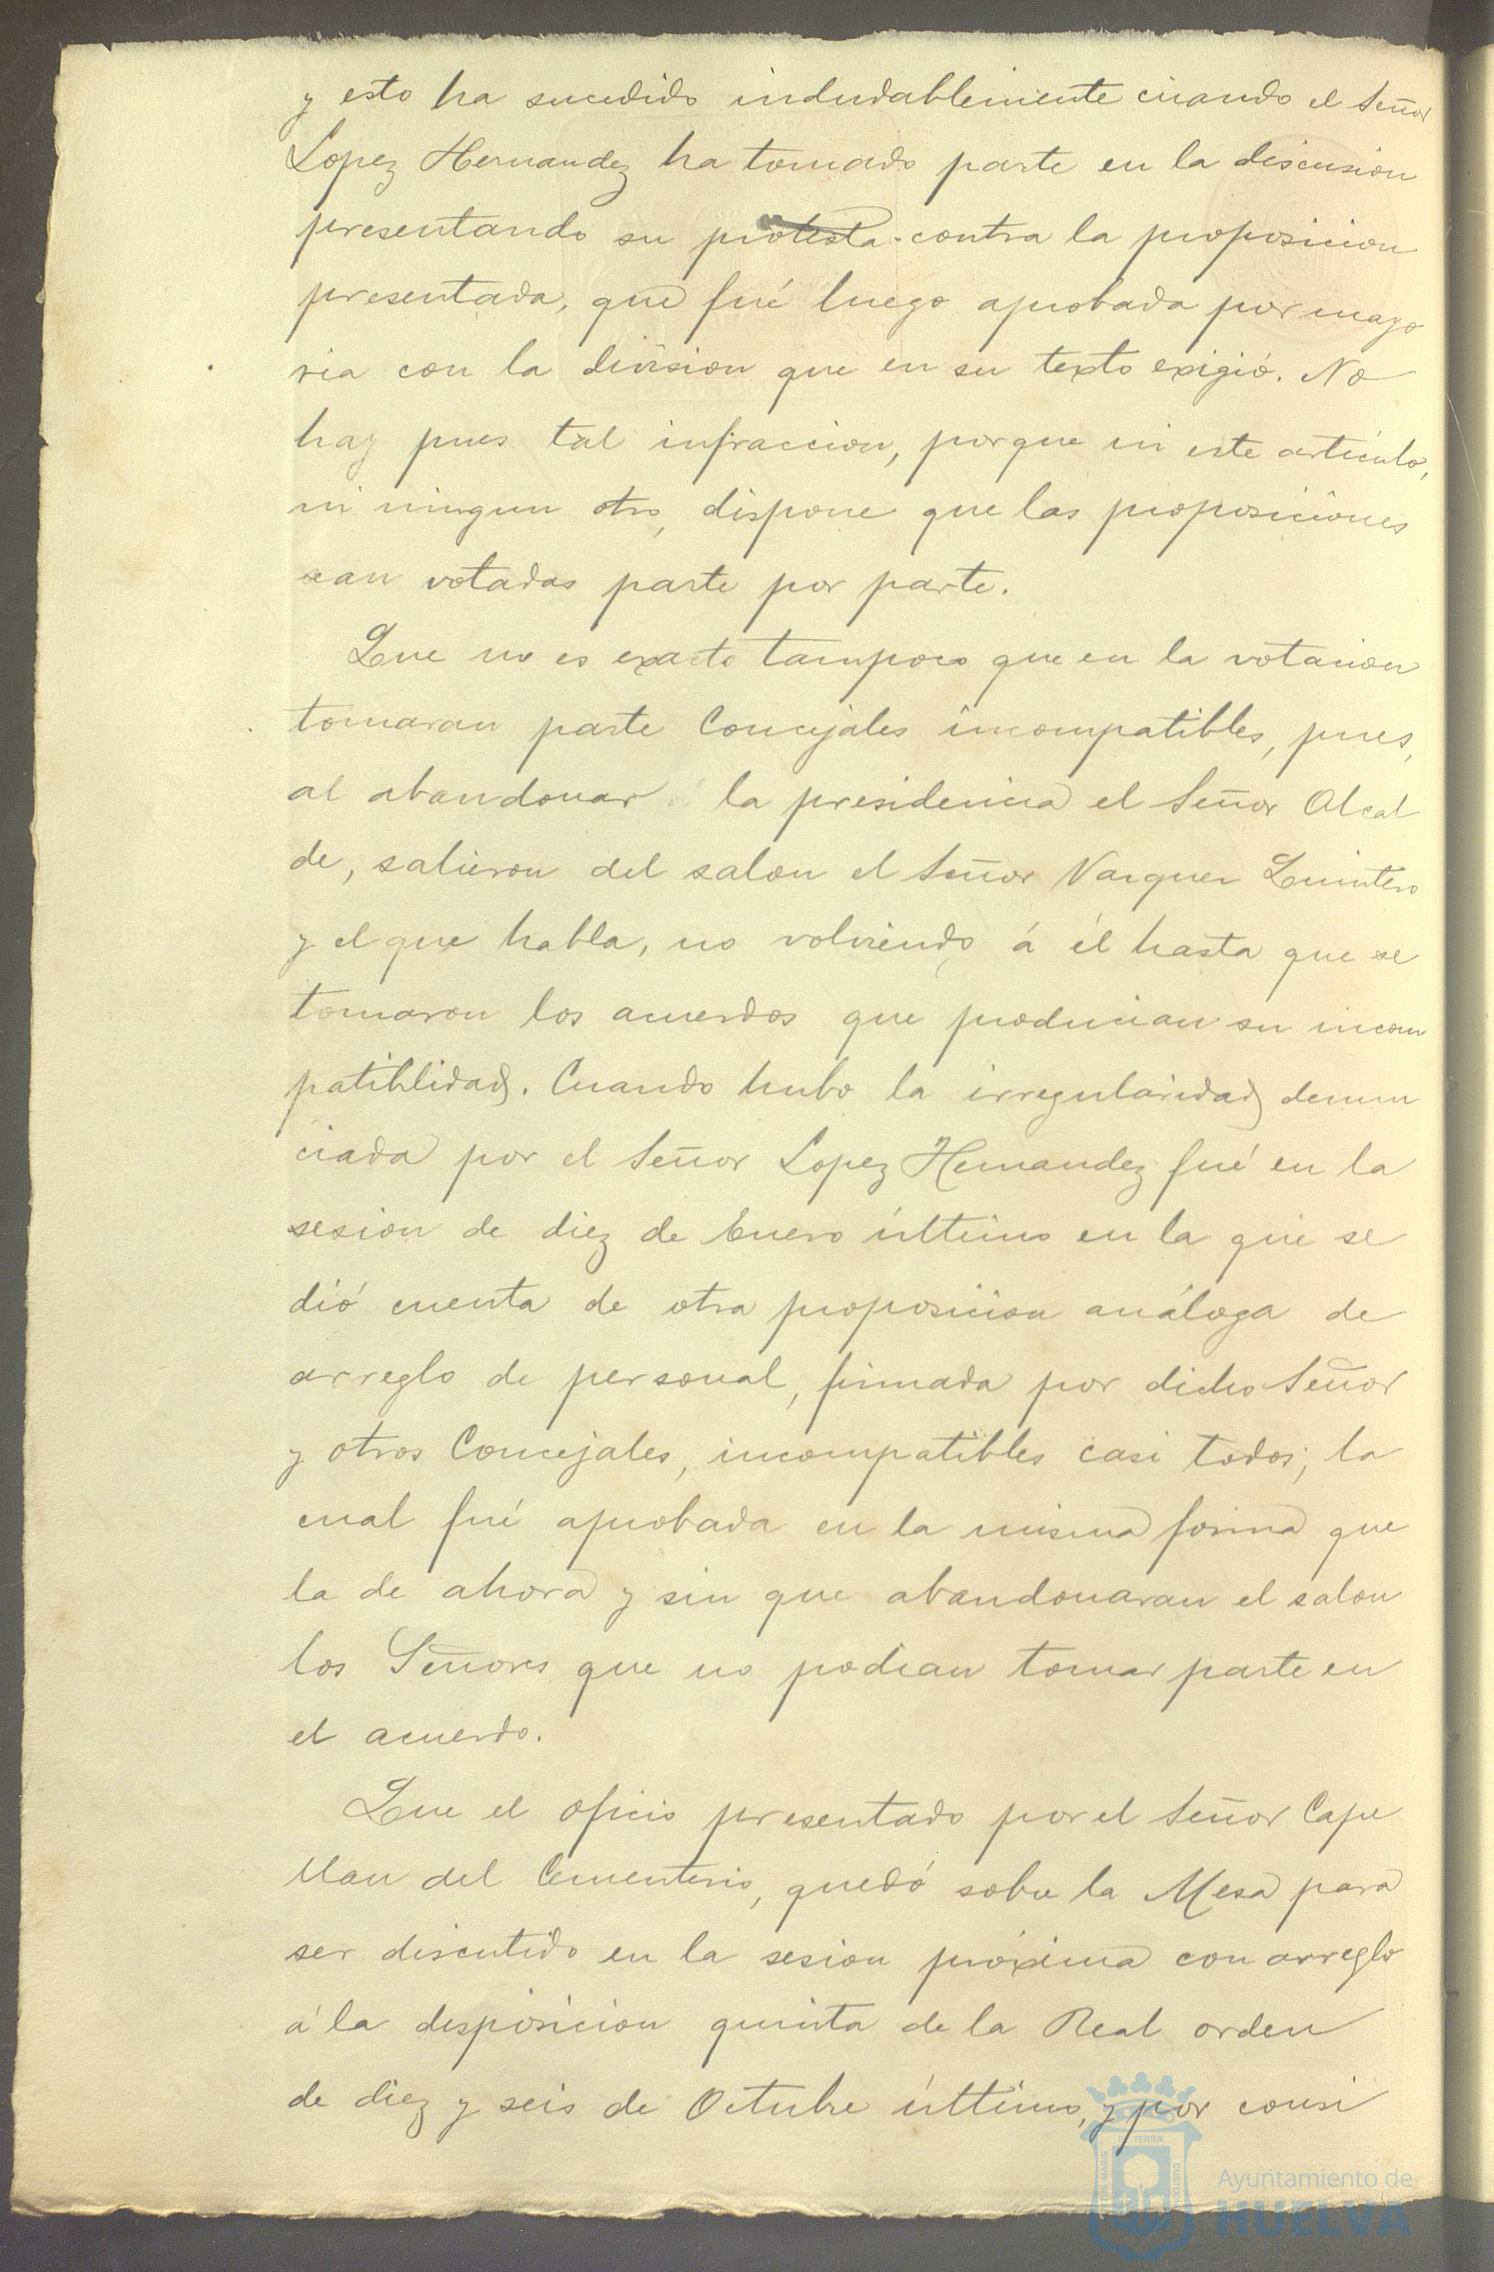 y esto ha sucedido indudablemente cuando el Señor
Lopez Hernandez ha tomado parte en la discusion
presentando su protesta contra la proposicion
presentada, que fué luego aprobada por mayo
ria con la division que en su texto exigió. No
hay pues tal infraccion, porque ni este artículo,
ni ningun otro, dispone que las proposiciones
sean votadas parte por parte.
Que no es exacto tampoco que en la votacion
tomaran parte Concejales incompatibles, pues,
al abandonar la presidencia el Señor Alcal
de, salieron del salon el Señor Vazquez Quintero
y el que habla, no volviendo á él hasta que se
tomaron los acuerdos que producian su incom
patiblidad. Cuando hubo la irregularidad denun
ciada por el Señor Lopez Hernandez fué en la
sesion de diez de Enero último en la que se
dió cuenta de otra proposicion análoga de
arreglo de personal, firmada por dicho Señor
y otros Concejales, incompatibles casi todos; la
cual fué aprobada en la misma forma que
la de ahora y sin que abandonaran el salon
los Señores que no podian tomar parte en
el acuerdo.
Que el oficio presentado por el Señor Cape
llan del Cementerio, quedó sobre la Mesa para
ser discutido en la sesion próxima con arreglo
á la disposicion quinta de la Real orden
de diez y seis de Octubre último, y por consi
Ayuntamiento de
HUELVA